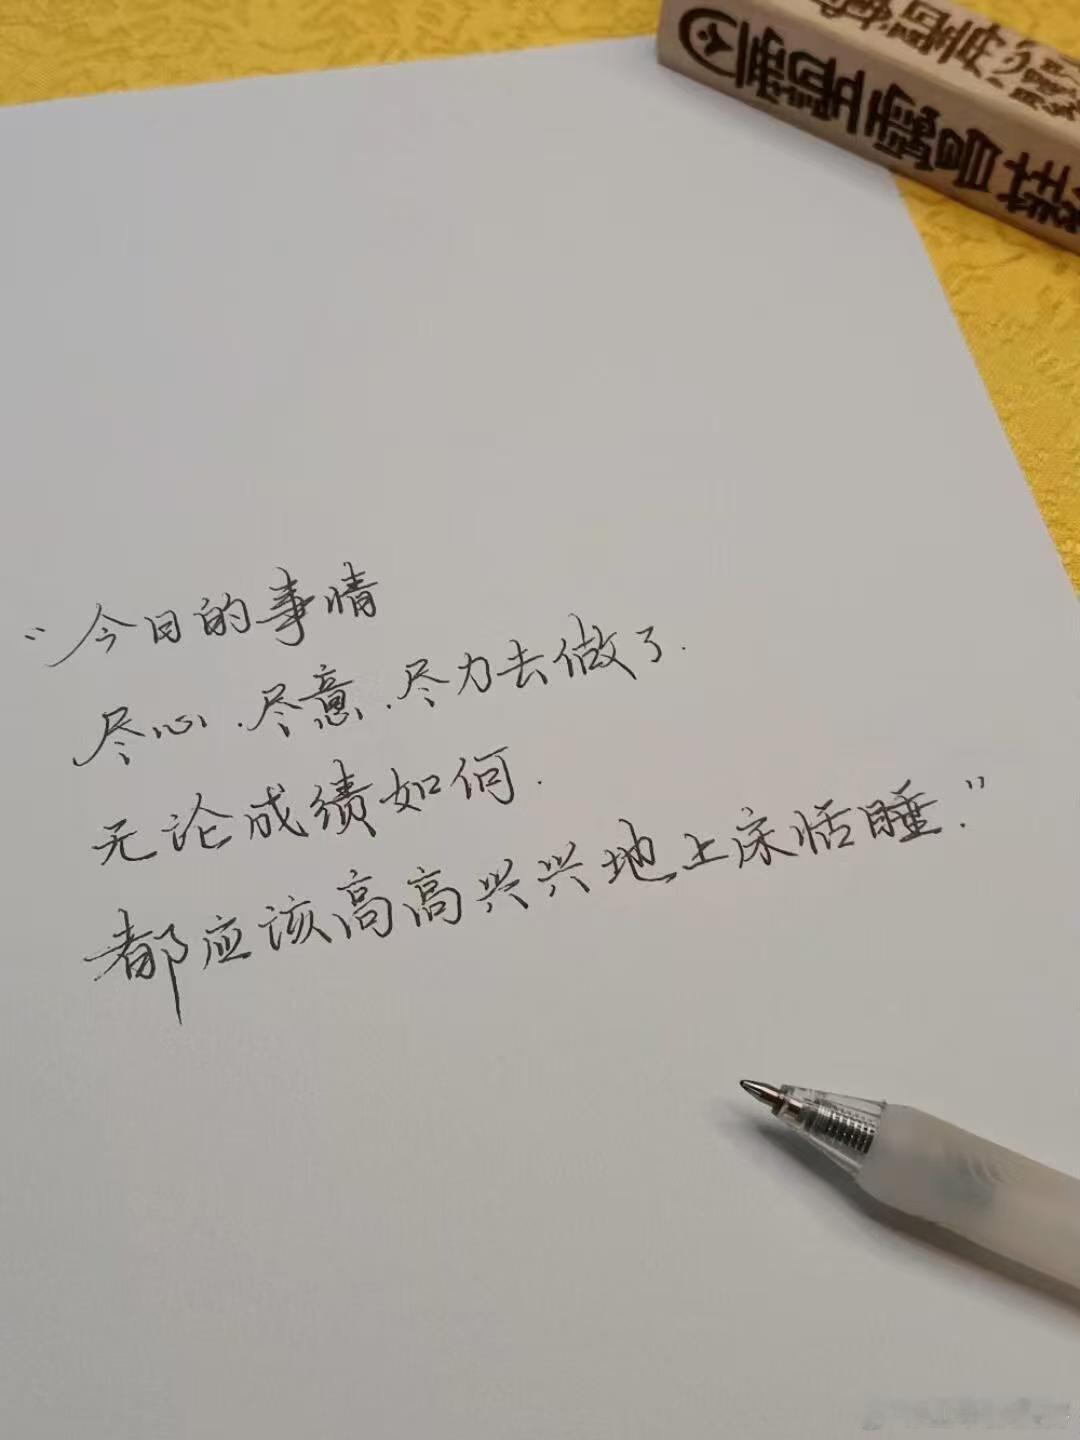 “今日的事情
尽心.尽意.尽力去做了.
无论成绩如何.
都应该高高兴兴地上床恬睡.”